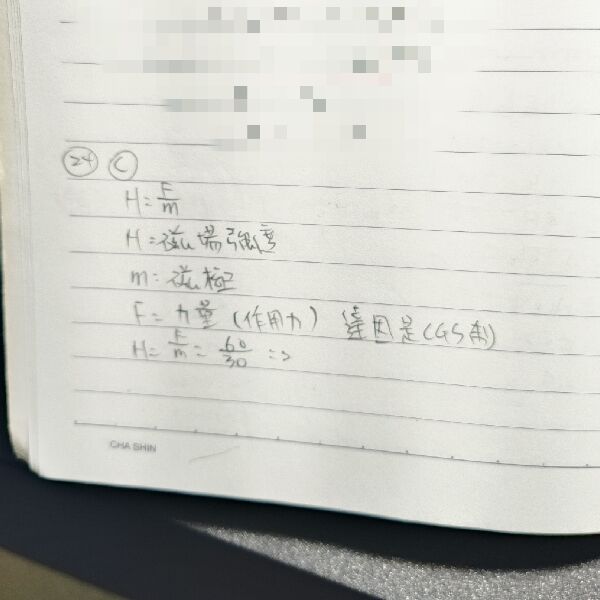 24 C
H = F/m
H = 磁場強度
m = 磁極
F = 力量 (作用力) 達因是CGS制)
H = F/m = 60/30 =>
CHA SHIN